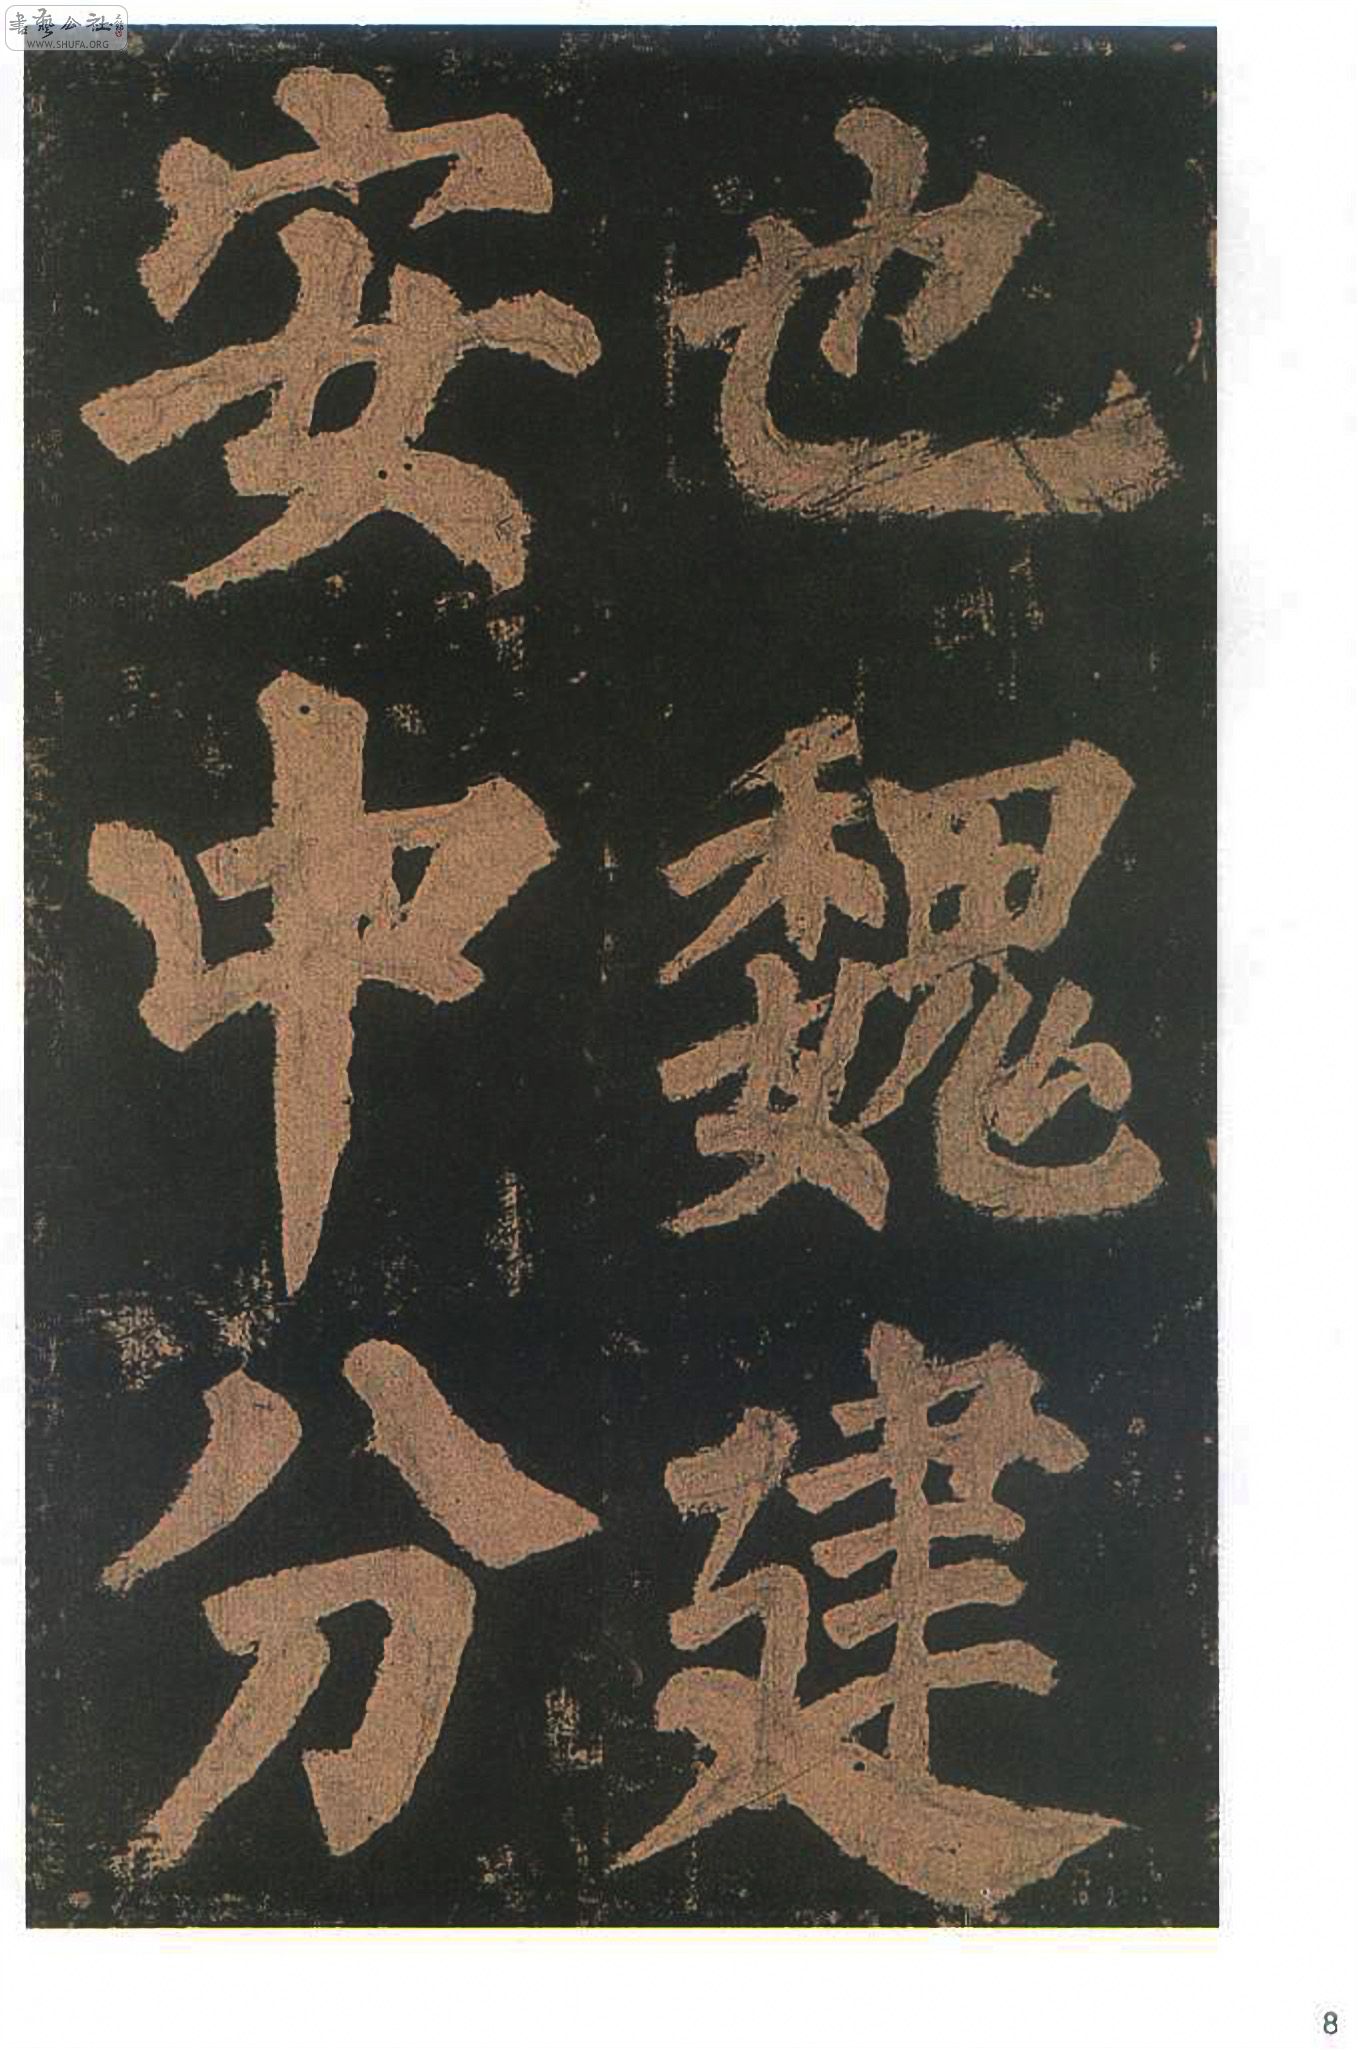 也魏建
安中分
書藝公社
WWW.SHUFA.ORG
8